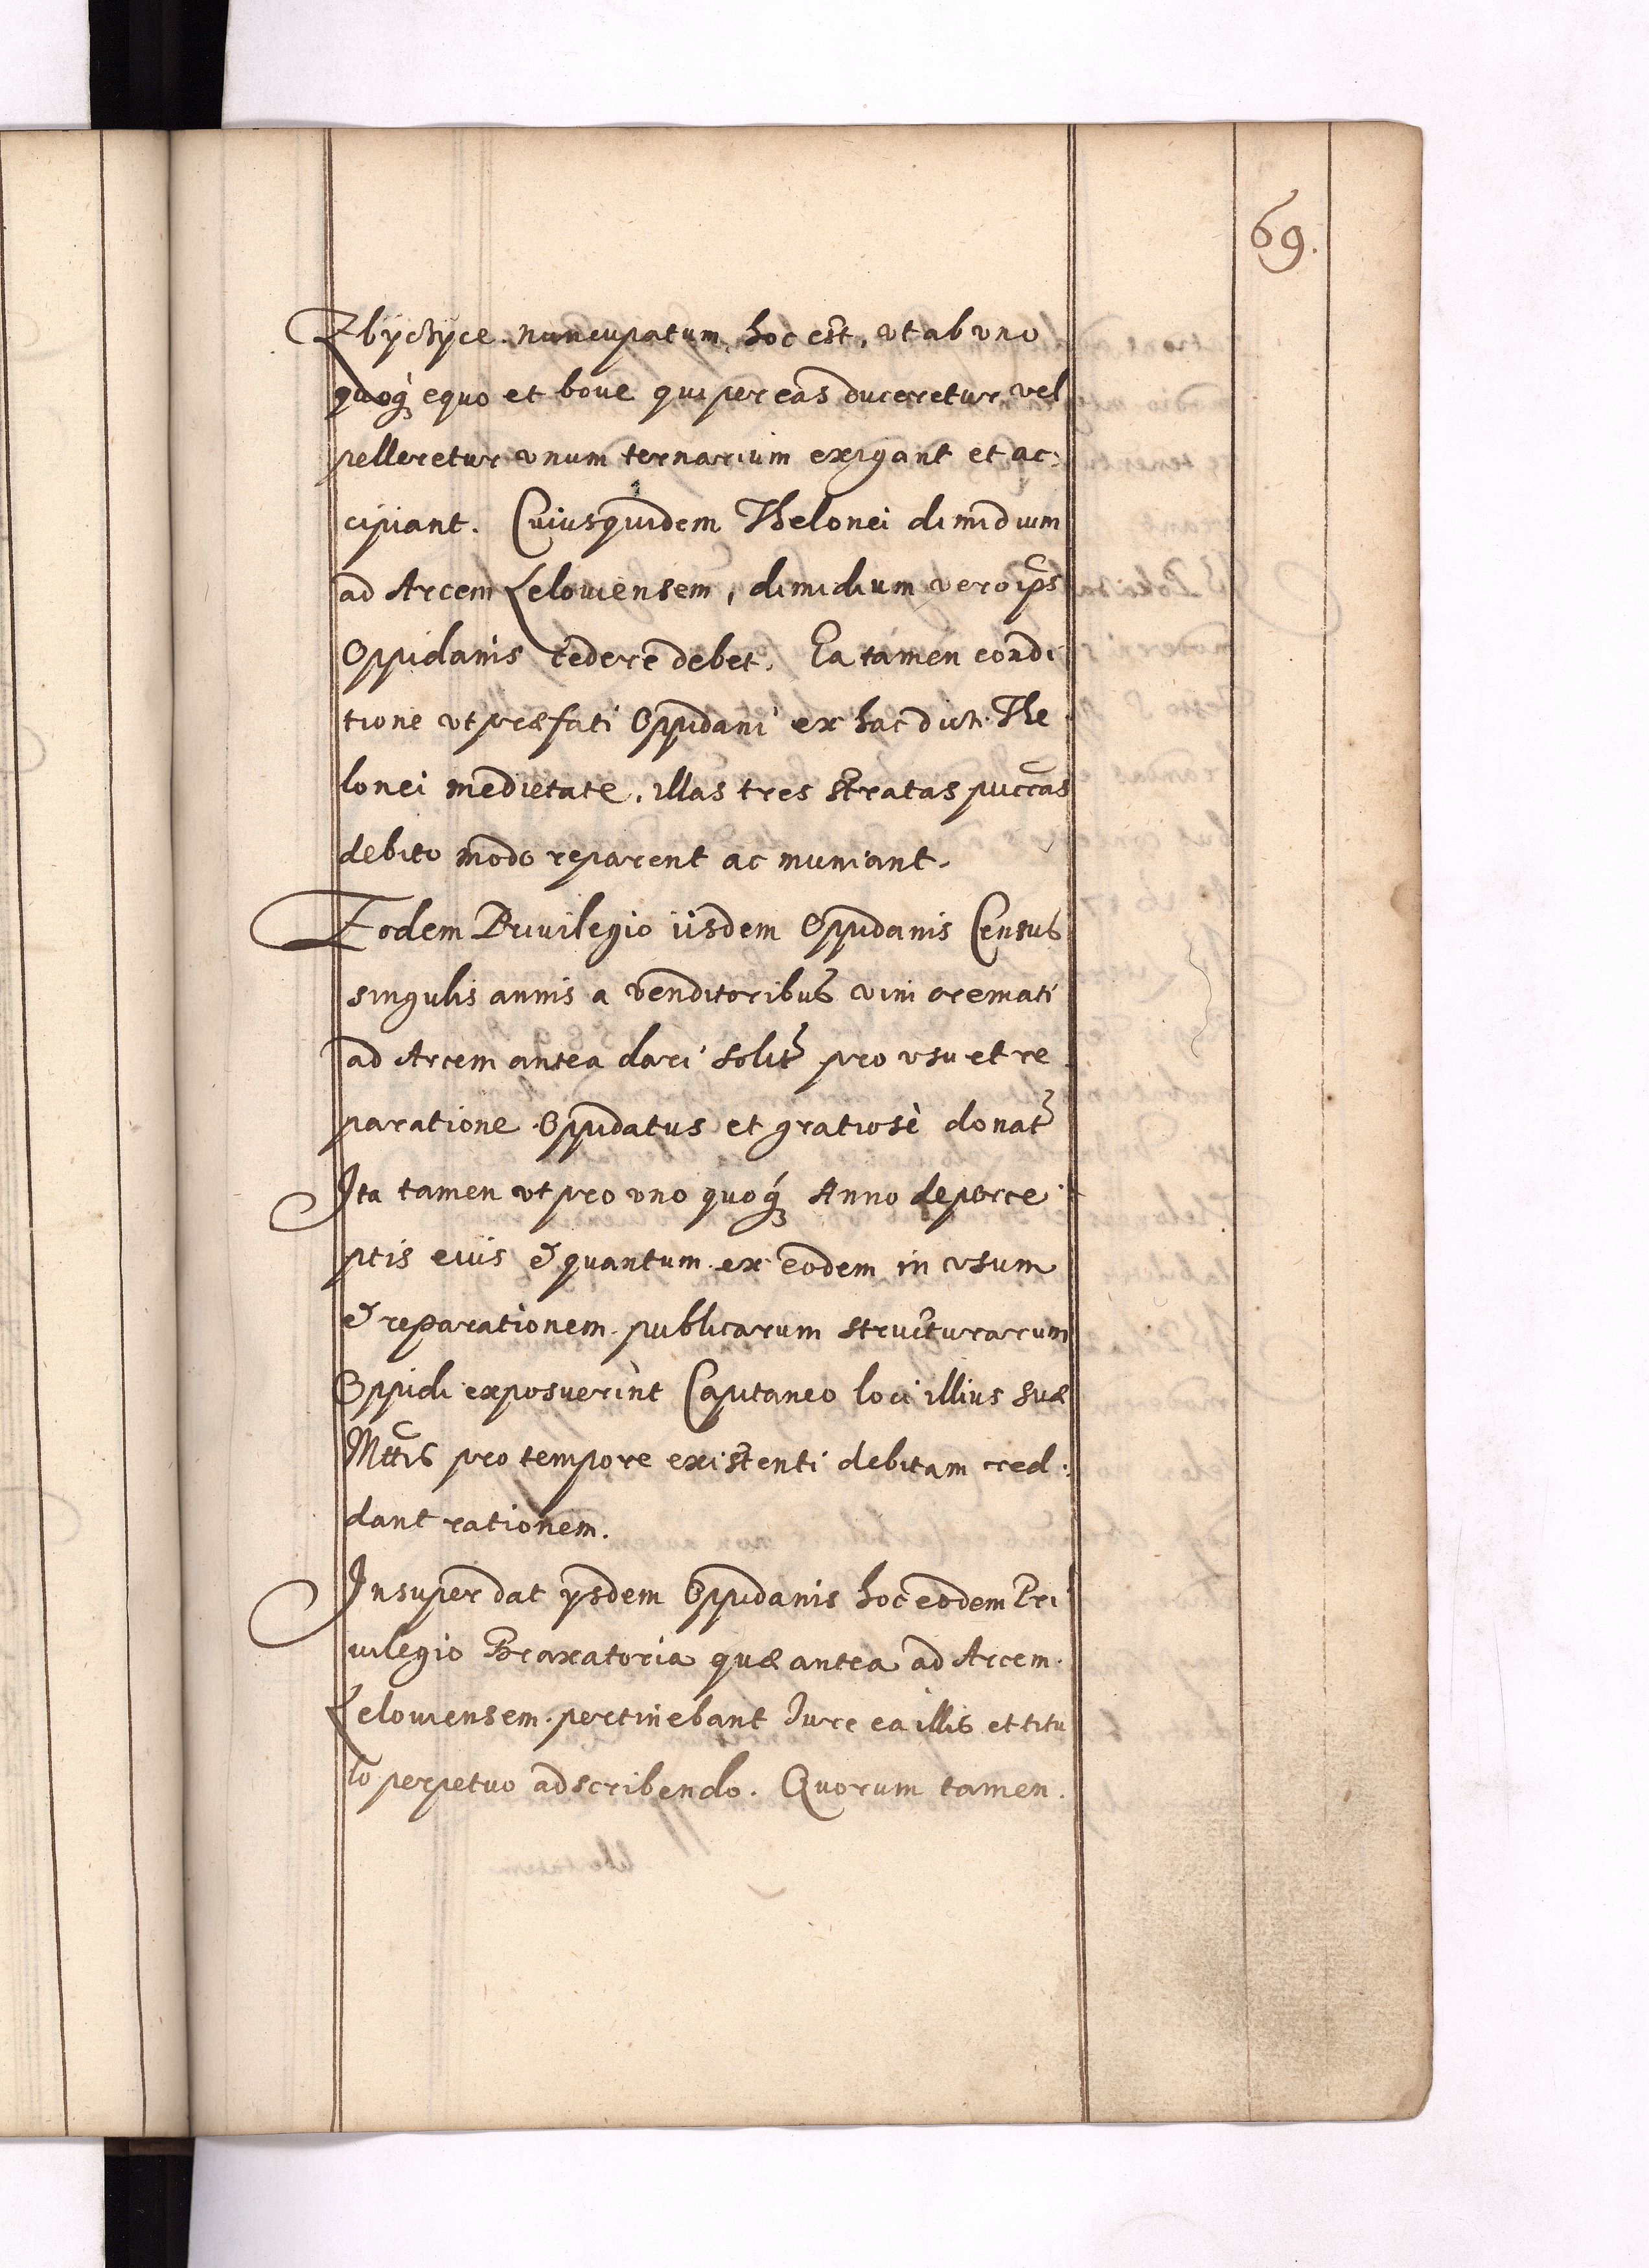 69.
Zbyczyce nuncupatum, hoc est, vt ab vno
quoq; equo et boue qui per eas duceretur vel
pelleretur vnum ternarium exigant et ac:
cipiant. Cuiusquidem Thelonei dimidium
ad Arcem Lelouiensem, dimidium vero ips
Oppidanis cedere debet. Ea tamen condi
tione vt præfati Oppidani ex hac dicti The
lonei medietate, illas tres stratas puccas
debito modo reparent ac muniant.
Eodem Priuilegio iisdem Oppidanis Census
singulis annis a venditoribus vini cremati
ad Arcem antea dari solit pro vsu et re
paratione Oppidatus et gratiosè donat
Ita tamen vt pro vno quoq; Anno de perce
ptis eius & quantum ex eodem in vsum
& reparationem publicarum structurarum
Oppidi exposuerint Capitaneo loci illius suæ
Mttis pro tempore existenti debitam red:
dant rationem.
Insuper dat ysdem Oppidanis hoc eodem Pri
uilegio Braxatoria quæ antea ad Arcem
Lelouiensem pertinebant Iure ea illis et titu
lo perpetuo adscribendo. Quorum tamen